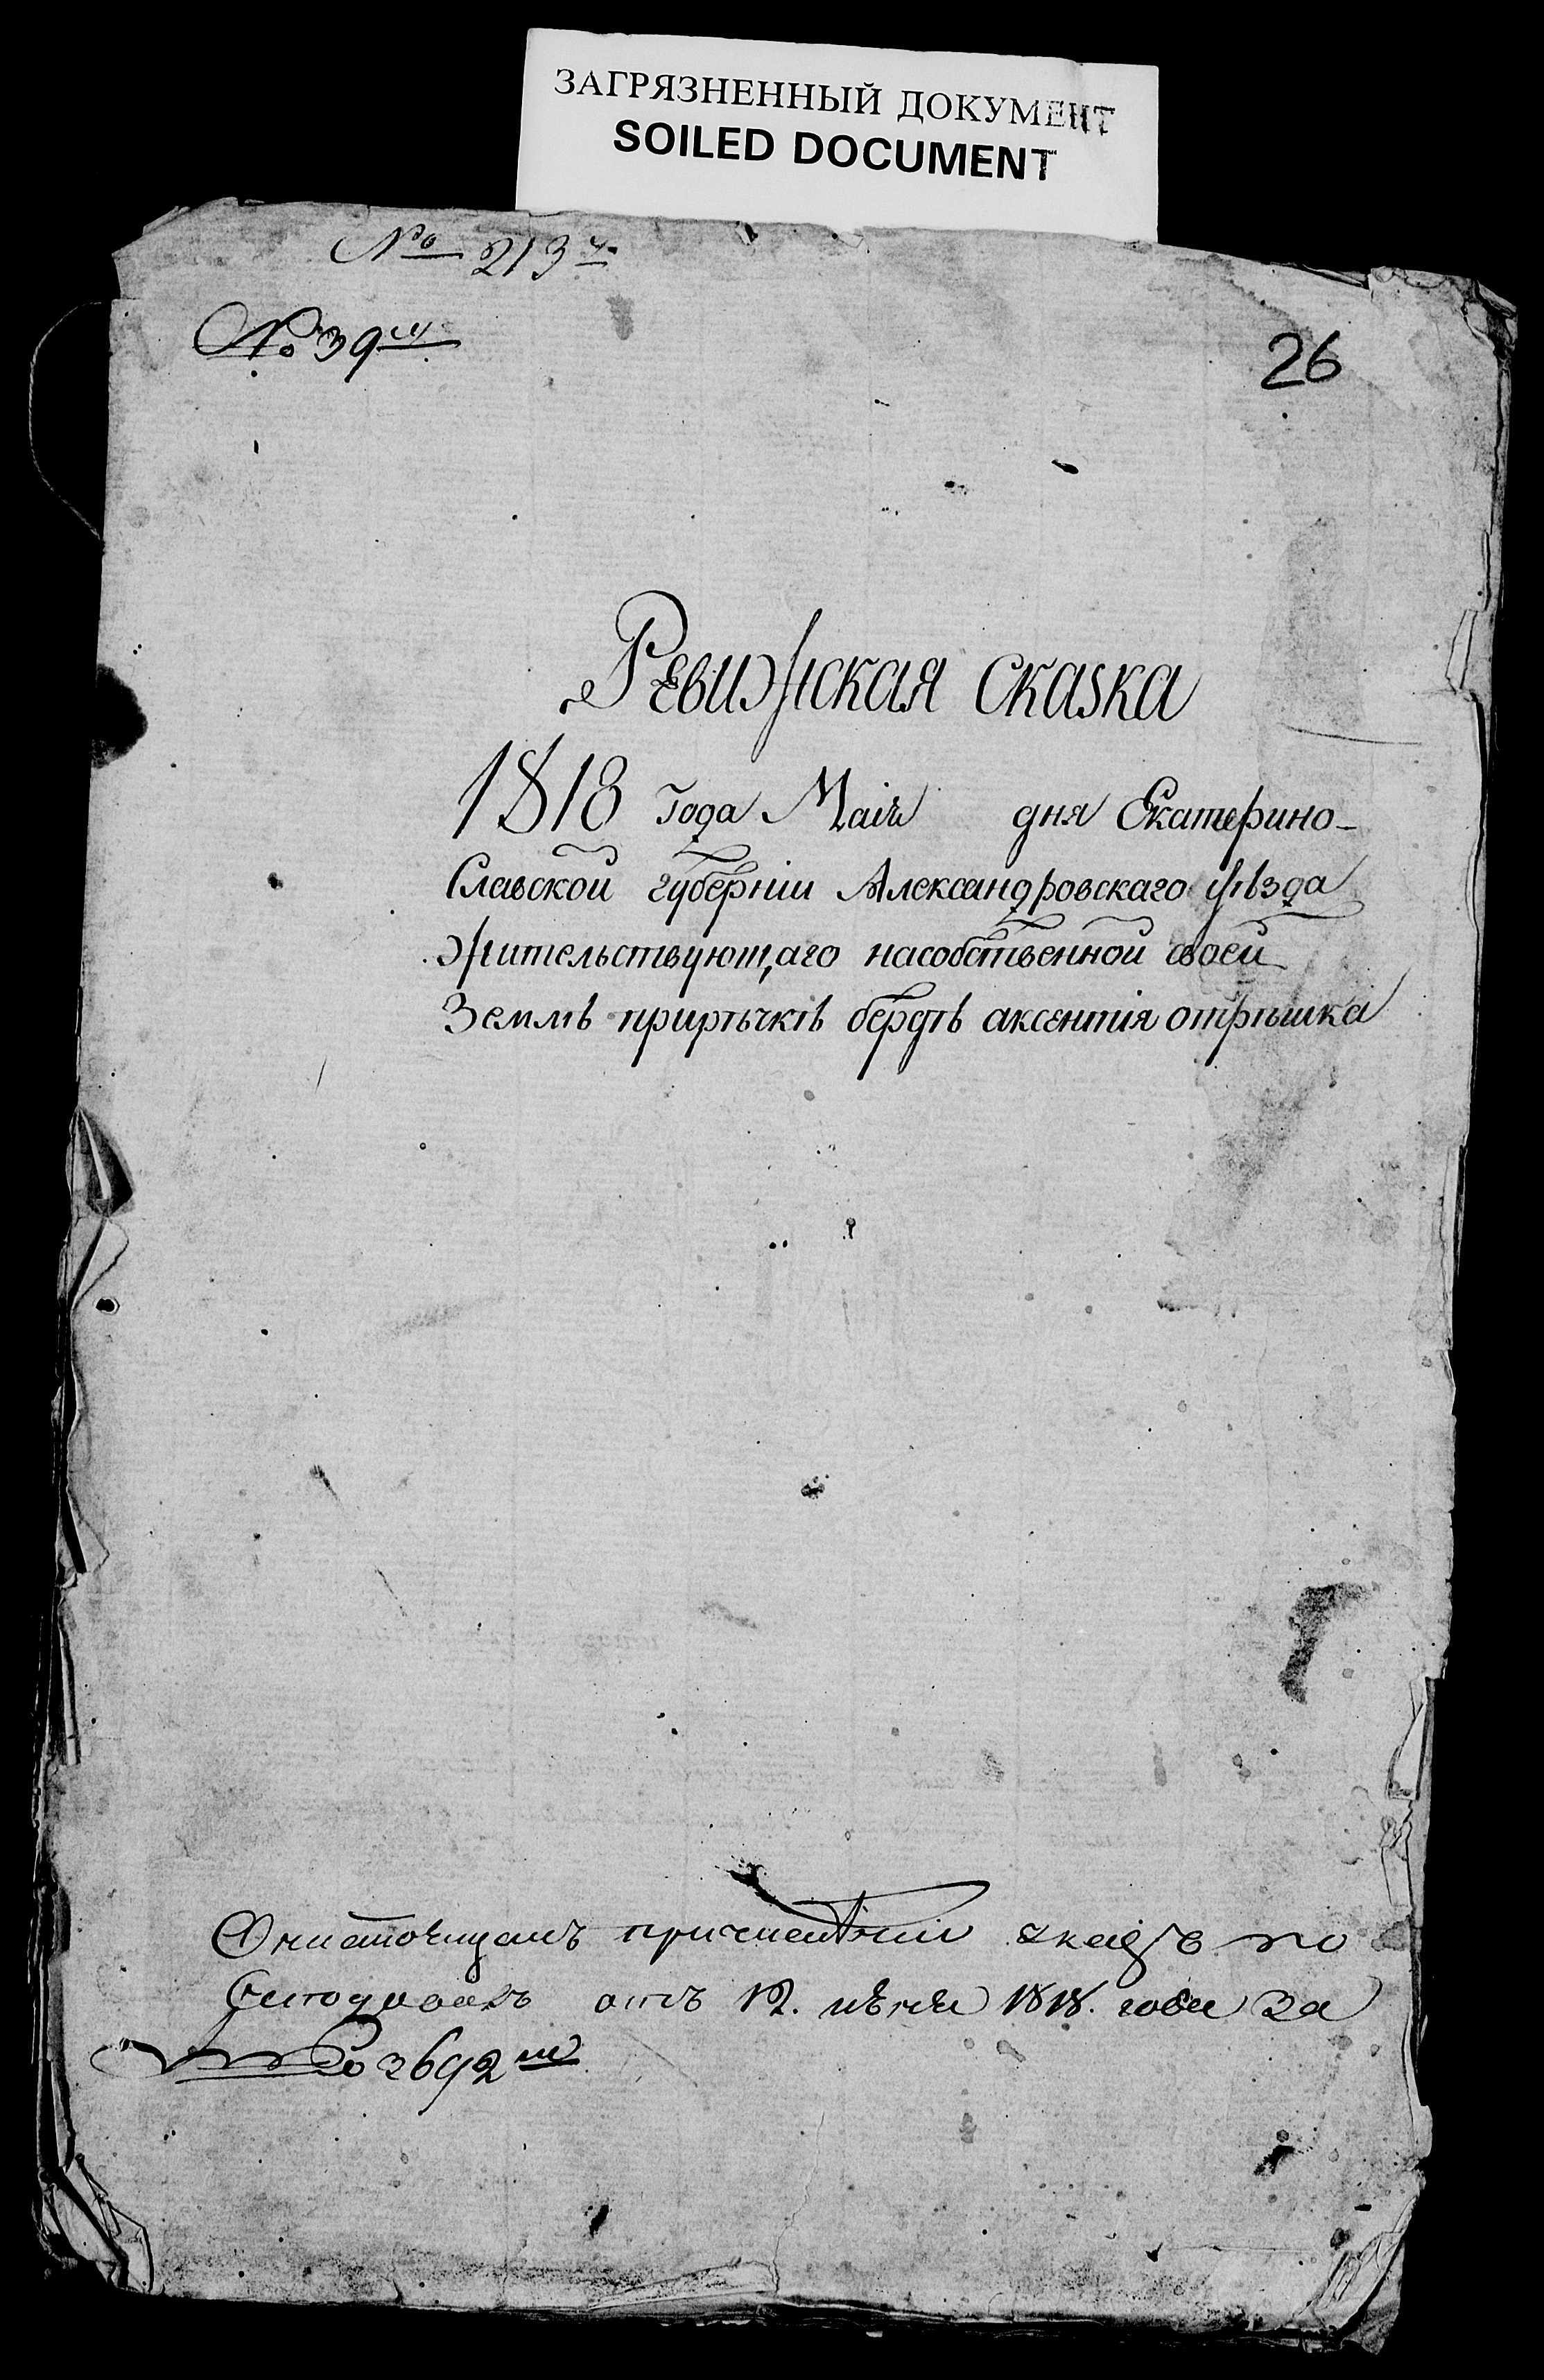 ЗАГРЯЗНЕННЫЙ ДОКУМЕНТ
SOILED DOCUMENT
№ 213
№ 39
26
Ревижская сказка
1818 года Маія дня Екатерино-
Славской губерніи Александровскаго уѣзда
жительствующаго насобственной своей
Землѣ прирѣчкѣ бердѣ аксентія отрѣшка
указъ по
отъ 12. 1818. года за
№ 3692